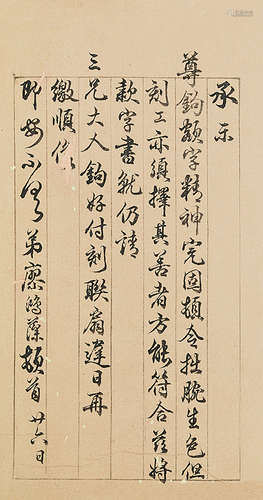 承示
尊鈎額字精神完固頓令拙腕生色但
刻工亦須擇其善者方能符合茲將
款字書就仍請
三兄大人鈎好付刻聯扇違日再
繳順候
即安不具 弟寮鴻藻頓首 廿六日